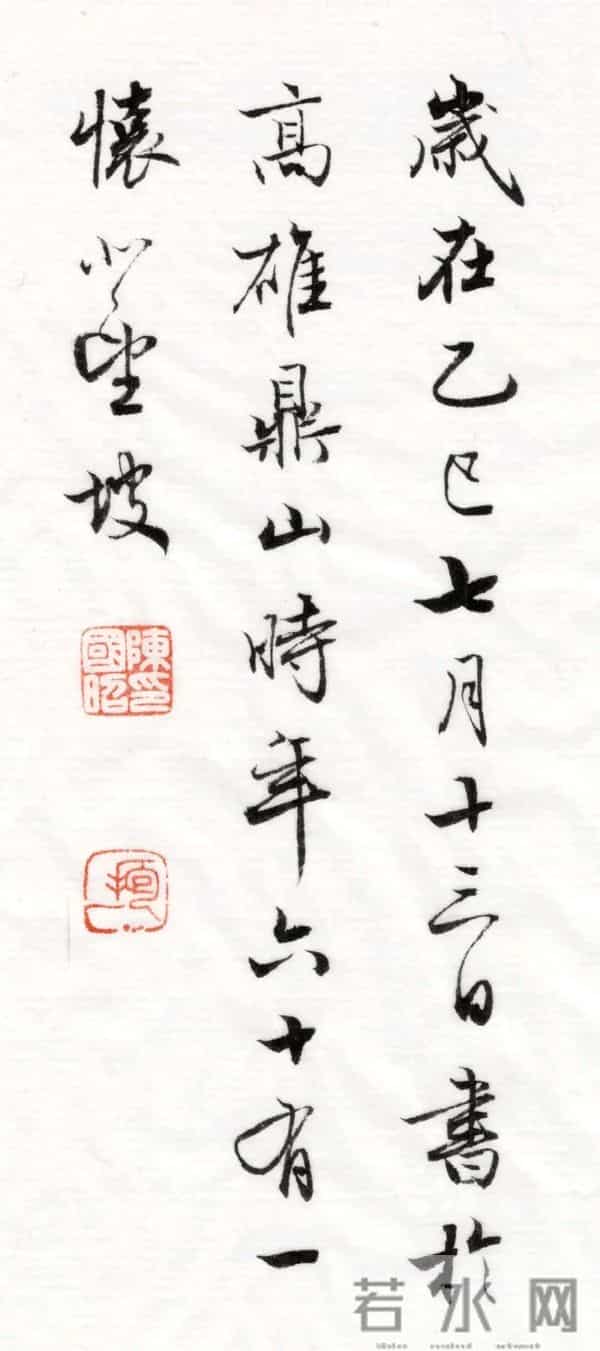 歲在乙巳七月十三日書於
高雄鼎山時年六十有一
懷坡
陳印國昭
若水网